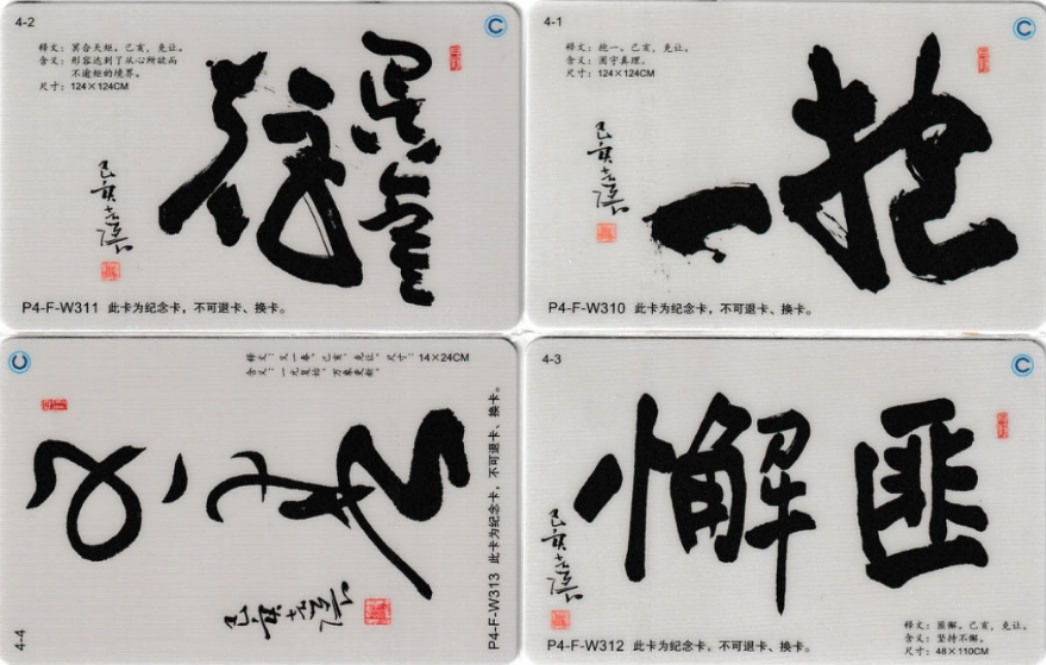 4-2
C
释文：冥合天矩。己亥，克让。
含义：形容达到了从心所欲而
不逾矩的境界。
尺寸：124×124CM
己亥克让
P4-F-W311 此卡为纪念卡，不可退卡、换卡。
4-1
C
释文：抱一。己亥，克让。
含义：固守真理。
尺寸：124×124CM
抱一
己亥克让
P4-F-W310 此卡为纪念卡，不可退卡、换卡。
4-4
C
释文：又一春。己亥，克让。尺寸：14×24CM
含义：一元复始，万象更新。
又一春
己亥克让
P4-F-W313 此卡为纪念卡，不可退卡、换卡。
4-3
C
匪懈
己亥克让
释文：匪懈。己亥，克让。
含义：坚持不懈。
尺寸：48×110CM
P4-F-W312 此卡为纪念卡，不可退卡、换卡。